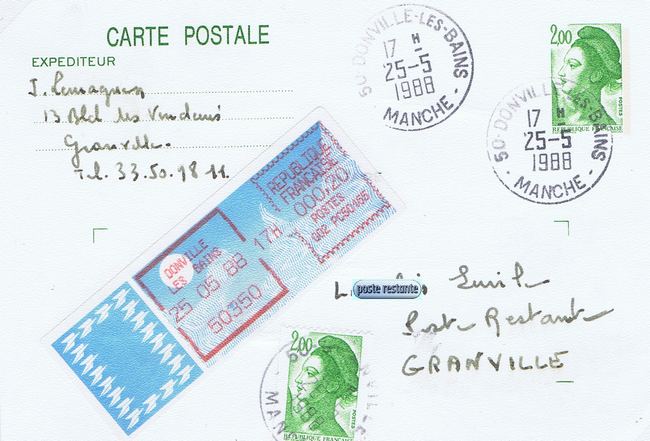 CARTE POSTALE
EXPEDITEUR
J. Lemaguen
13 Bld les Vendeuis
Granville.
Tel. 33.50.98 11.
50-DONVILLE-LES-BAINS
17 H
25-5
1988
MANCHE
2,00
POSTES
REPUBLIQUE FRANÇAISE
50-DONVILLE-LES-BAINS
17 H
25-5
1988
MANCHE
REPUBLIQUE
FRANÇAISE
000,20
POSTES
G02 PC50455
DONVILLE
LES BAINS
25 05 88 17H
50350
poste restante
Poste Restante
GRANVILLE
2,00
POSTES
REPUBLIQUE FRANÇAISE
MAN